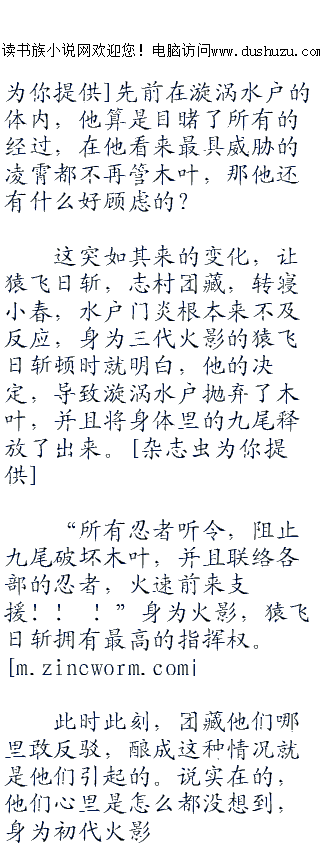 读书族小说网欢迎您！电脑访问www.dushuzu.com
为你提供]先前在漩涡水户的
体内，他算是目睹了所有的
经过，在他看来最具威胁的
凌霄都不再管木叶，那他还
有什么好顾虑的？
这突如其来的变化，让
猿飞日斩，志村团藏，转寝
小春，水户门炎根本来不及
反应，身为三代火影的猿飞
日斩顿时就明白，他的决
定，导致漩涡水户抛弃了木
叶，并且将身体里的九尾释
放了出来。[杂志虫为你提
供]
“所有忍者听令，阻止
九尾破坏木叶，并且联络各
部的忍者，火速前来支
援！！ ！”身为火影，猿飞
日斩拥有最高的指挥权。
[m.zincworm.com]
此时此刻，团藏他们哪
里敢反驳，酿成这种情况就
是他们引起的。说实在的，
他们心里是怎么都没想到，
身为初代火影